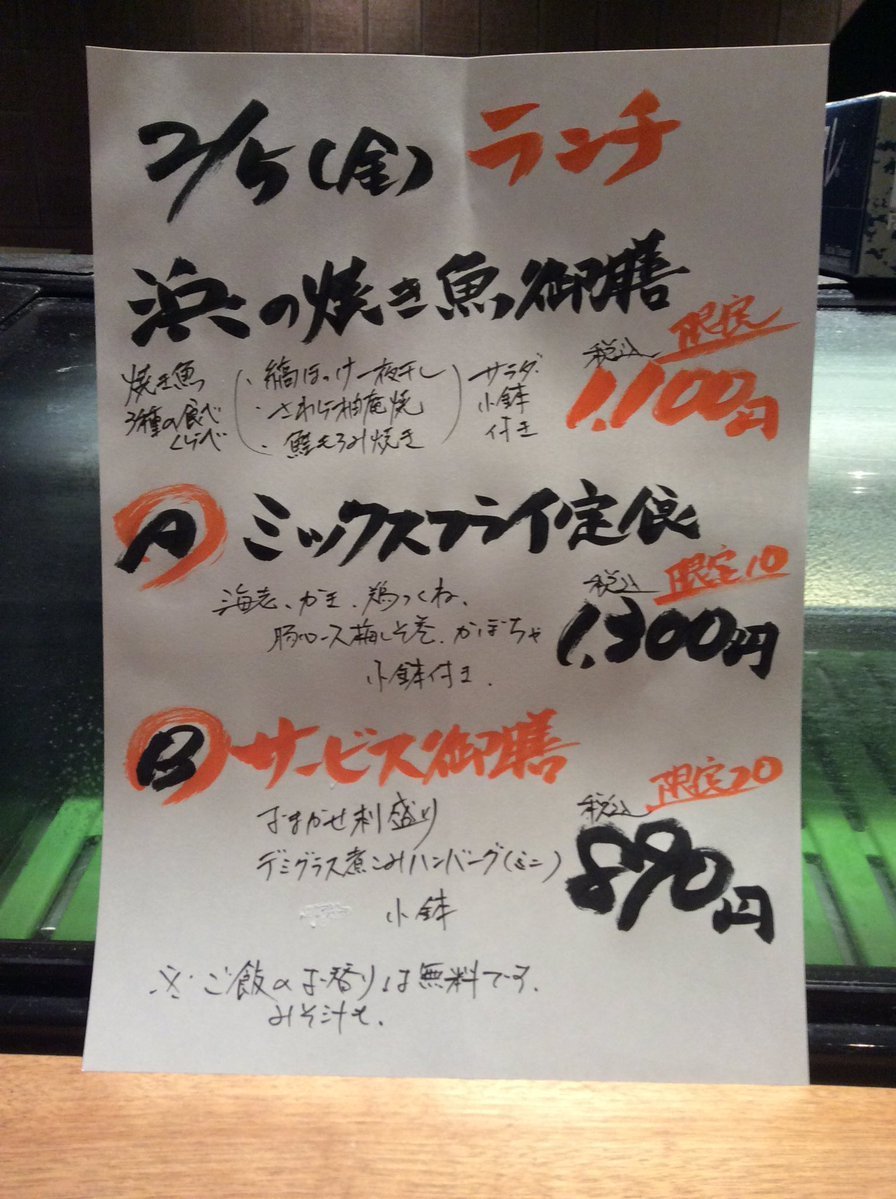 2/5(金) ランチ
浜の焼き魚御膳
限定
税込
1,100円
焼き魚
3種の食べ
くらべ
・縞ほっけ一夜干し
・さわら柚庵焼
・鮭もろみ焼き
サラダ
小鉢
付き
A ミックスフライ定食
税込 限定10
1,300円
海老、かき、鶏つくね、
豚ロース梅しそ巻、かぼちゃ
小鉢付き、
B サービス御膳
税込 限定20
890円
おまかせ刺盛り
デミグラス煮こみハンバーグ(ミニ)
小鉢
※ ご飯のお替りは無料です、
みそ汁も、